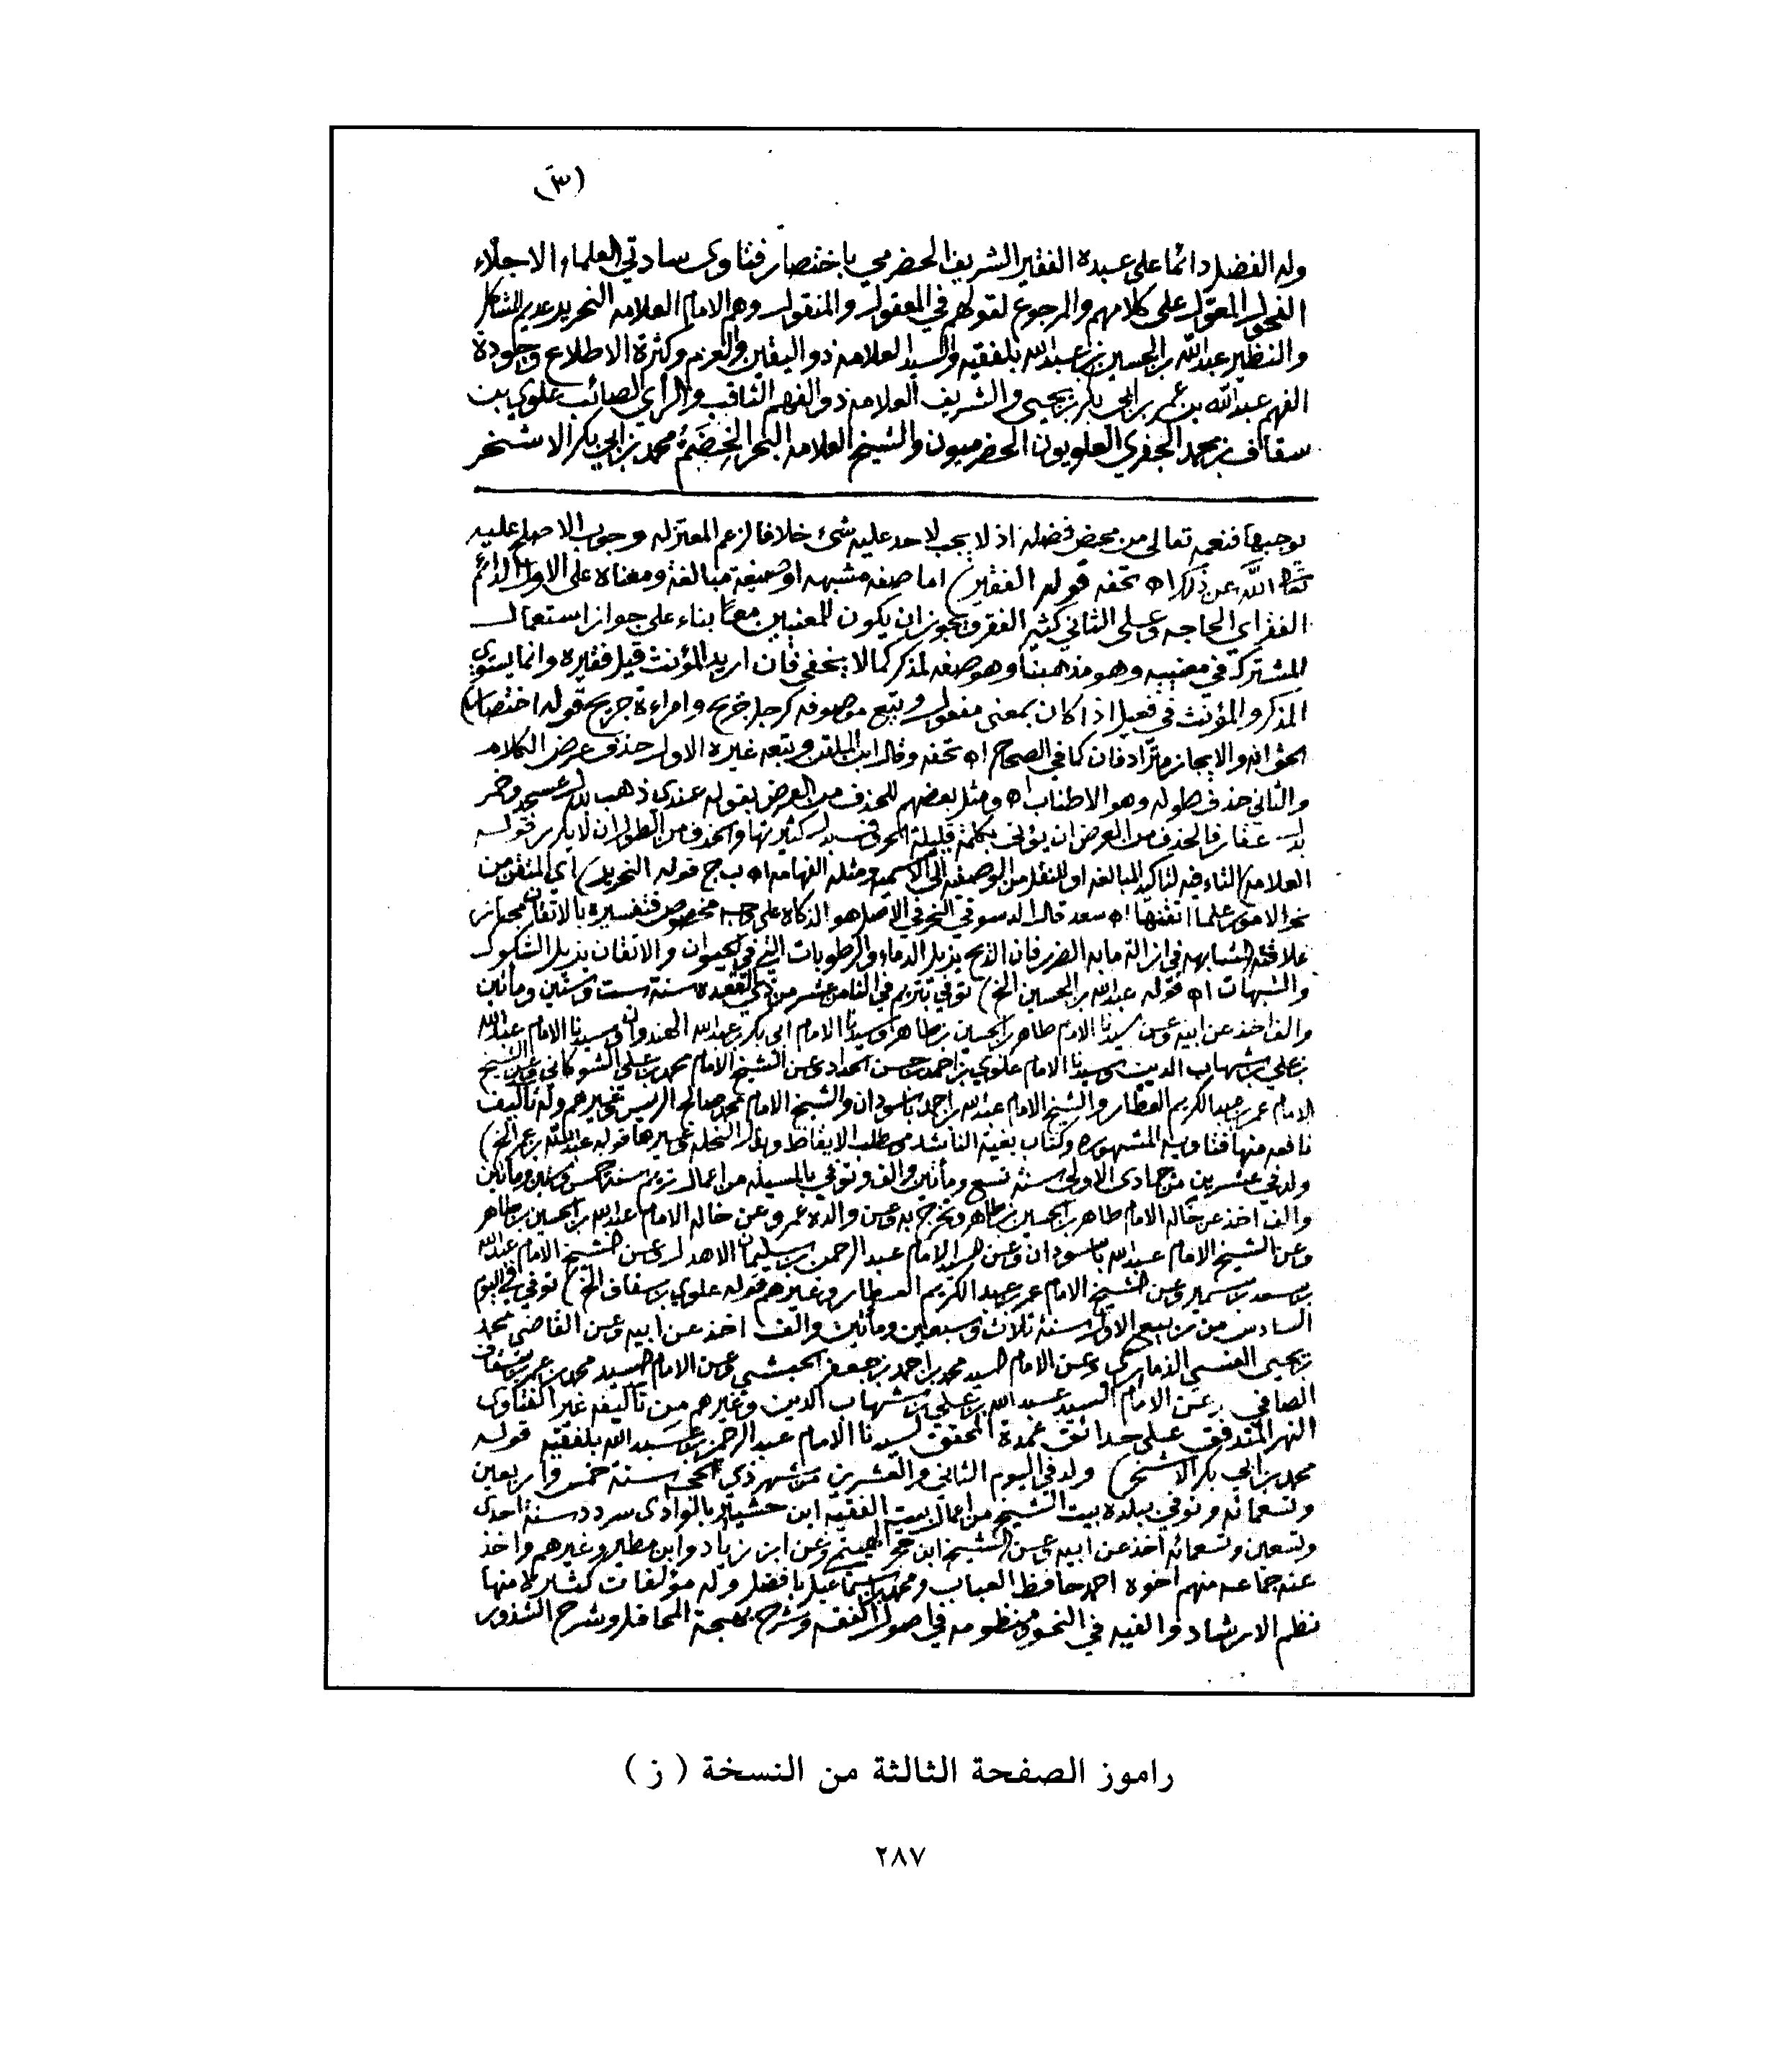 (٣)
وله الفضل دائما على عبده الفقير الشريف الحضرمي باختصار فتاوى سادتي العلماء الاجلاء
الفحول المعول على كلامهم والمرجوع لقولهم في المعقول والمنقول وهم الامام العلامه النحرير عديم المشاكل
والنظير عبدالله بن الحسين بن عبدالله بلفقيه والسيد العلامه ذو اليقين والعزم وكثرة الاطلاع وجودة
الفهم عبدالله بن عمر بن ابي بكر بن يحيى والشريف العلامه ذو الفهم الثاقب والرأي الصائب علوي بن
سقاف بن محمد الجفري العلويون الحضرميون والشيخ العلامه البحر الخِضَمُّ محمد بن ابي بكر الاشخر
يوجبها فنعمه تعالى من محض فضله اذ لا يجب لاحد عليه شئ خلافا لزعم المعتزله وجوب الاصلح عليه
تعالى الله عن ذلك اه تحفه قوله الفقير) اما صفه مشبهه او صيغة مبالغة ومعناه على الاول الدائم
الفقر اي الحاجه وعلى الثاني كثير الفقر ويجوز ان يكون للمعنيين معًا بناء على جواز استعمال
المشترك في معنييه وهو مذهبنا وهو صفه لمذكر كما لا يخفى فان اريد المؤنث قيل فقيره وانما يستوي
المذكر والمؤنث في فعيل اذا كان بمعنى مفعول وتبع موصوفه كرجل جريح وامراءة جريح قوله اختصار)
هو انه والايجاز مترادفان كما في الصحاح اه تحفه وقال ابن الملقن وتبعه غيره الاول حذف عرض الكلام
والثاني حذف طوله وهو الاطناب اه ومثل بعضهم للحذف من العرض بقوله عندي ذهب بدل عسجد وخمر
بدل عقار فالحذف من العرض ان يؤتى بكلمة قليلة الحروف بدل كثيرتها والحذف من الطول ان لا يكرر قوله
العلامه) التاء فيه لتاكيد المبالغه او للنقل من الوصفيه الى الاسميه ومثله الفهامه اه ب ج قوله النحرير) اي المتقن من
نحر الامور علما اتقنها اه سعد قال الدسوقي النحر في الاصل هو الذكاة على وجه مخصوص فتفسيره بالاتقان مجاز
علاقته المشابهه في ازالة ما به الضرر فان الذبح يزيل الدماء والرطوبات التي في الحيوان والاتقان يزيل الشكوك
والشبهات اه قوله عبدالله بن الحسين الخ) توفي بتريم في الثامن عشر من ذي القعده سنة ست وستين ومأتين
والف اخذ عن ابيه وعن سيدنا الامام طاهر بن الحسين بن طاهر وسيدنا الامام ابي بكر بن عبدالله الهندوان وسيدنا الامام عبدالله
بن علي بن شهاب الدين وسيدنا الامام علوي بن احمد بن حسن الحداد وعن الشيخ الامام محمد بن علي الشوكاني وعن الشيخ
الامام عمر بن عبدالكريم العطار والشيخ الامام عبدالله بن احمد باسودان والشيخ الامام محمد صالح الريس وغيرهم وله تأليف
نافعه منها فتاويه المشهوره وكتاب بغية الناشد ومطلب الايقاظ وبذل النحله وغيرها قوله عبدالله بن عمر الخ)
ولد في عشرين من جمادى الاولى سنة تسع ومأتين والف وتوفي بالمسيله من اعمال تريم سنة خمس وستين ومأتين
والف اخذ عن خاله الامام طاهر بن الحسين بن طاهر وتخرج به وعن والده عمر وعن خاله الامام عبدالله بن الحسين بن طاهر
وعن الشيخ الامام عبدالله باسودان وعن السيد الامام عبد الرحمن بن سليمان الاهدل وعن الشيخ الامام عبدالله
بن سعد بن سمير وعن الشيخ الامام عمر بن عبد الكريم العطار وغيرهم قوله علوي بن سقاف الخ) توفي في اليوم
السادس من ربيع الاول سنة ثلاث وسبعين ومأتين والف اخذ عن ابيه وعن القاضي محمد
بن يحيى العنسي الذماري وعن الامام السيد محمد بن احمد بن جعفر الحبشي وعن الامام السيد محمد بن عمر بن سقاف
الصافي وعن الامام السيد عبد الله بن علي بن شهاب الدين وغيرهم من تآليفه غير الفتاوى
النهر المتدفق على حدائق عمدة المحقق لسيدنا الامام عبد الرحمن بن عبد الله بلفقيه قوله
محمد بن ابي بكر الاشخر) ولد في اليوم الثاني والعشرين من شهر ذي الحجه سنة خمس واربعين
وتسعمائه وتوفي ببلده بيت الشيخ من اعمال بيت الفقيه ابن حشيبر بالوادى سردد سنة احدى
وتسعين وتسعمائه اخذ عن ابيه وعن الشيخ ابن حجر الهيتمي وعن ابن زياد وابن مطير وغيرهم واخذ
عنه جماعه منهم اخوه احمد حافظ العباب ومحمد بن اسماعيل بافضل وله مؤلفات كثيرة منها
نظم الارشاد والفيه في النحو ومنظومه في اصول الفقه وشرح بهجة المحافل وشرح الشذور
راموز الصفحة الثالثة من النسخة ( ز )
٢٨٧